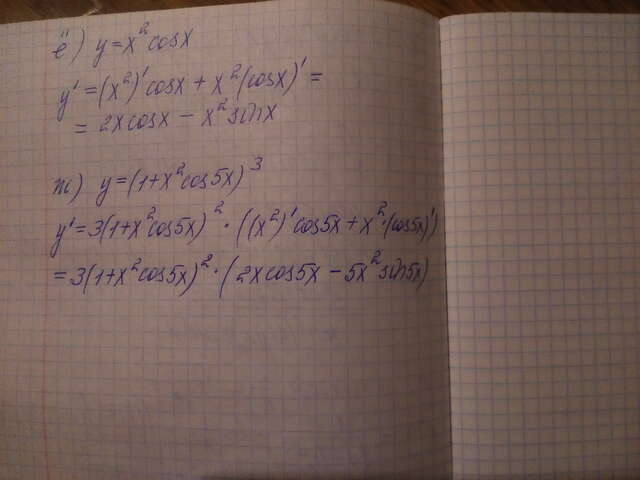 ё) y=x²cosx
y'=(x²)'cosx+x²(cosx)'=
=2xcosx-x²sinx
ж) y=(1+x²cos5x)³
y'=3(1+x²cos5x)²·((x²)'cos5x+x²·(cos5x)')
=3(1+x²cos5x)²·(2xcos5x-5x²sin5x)